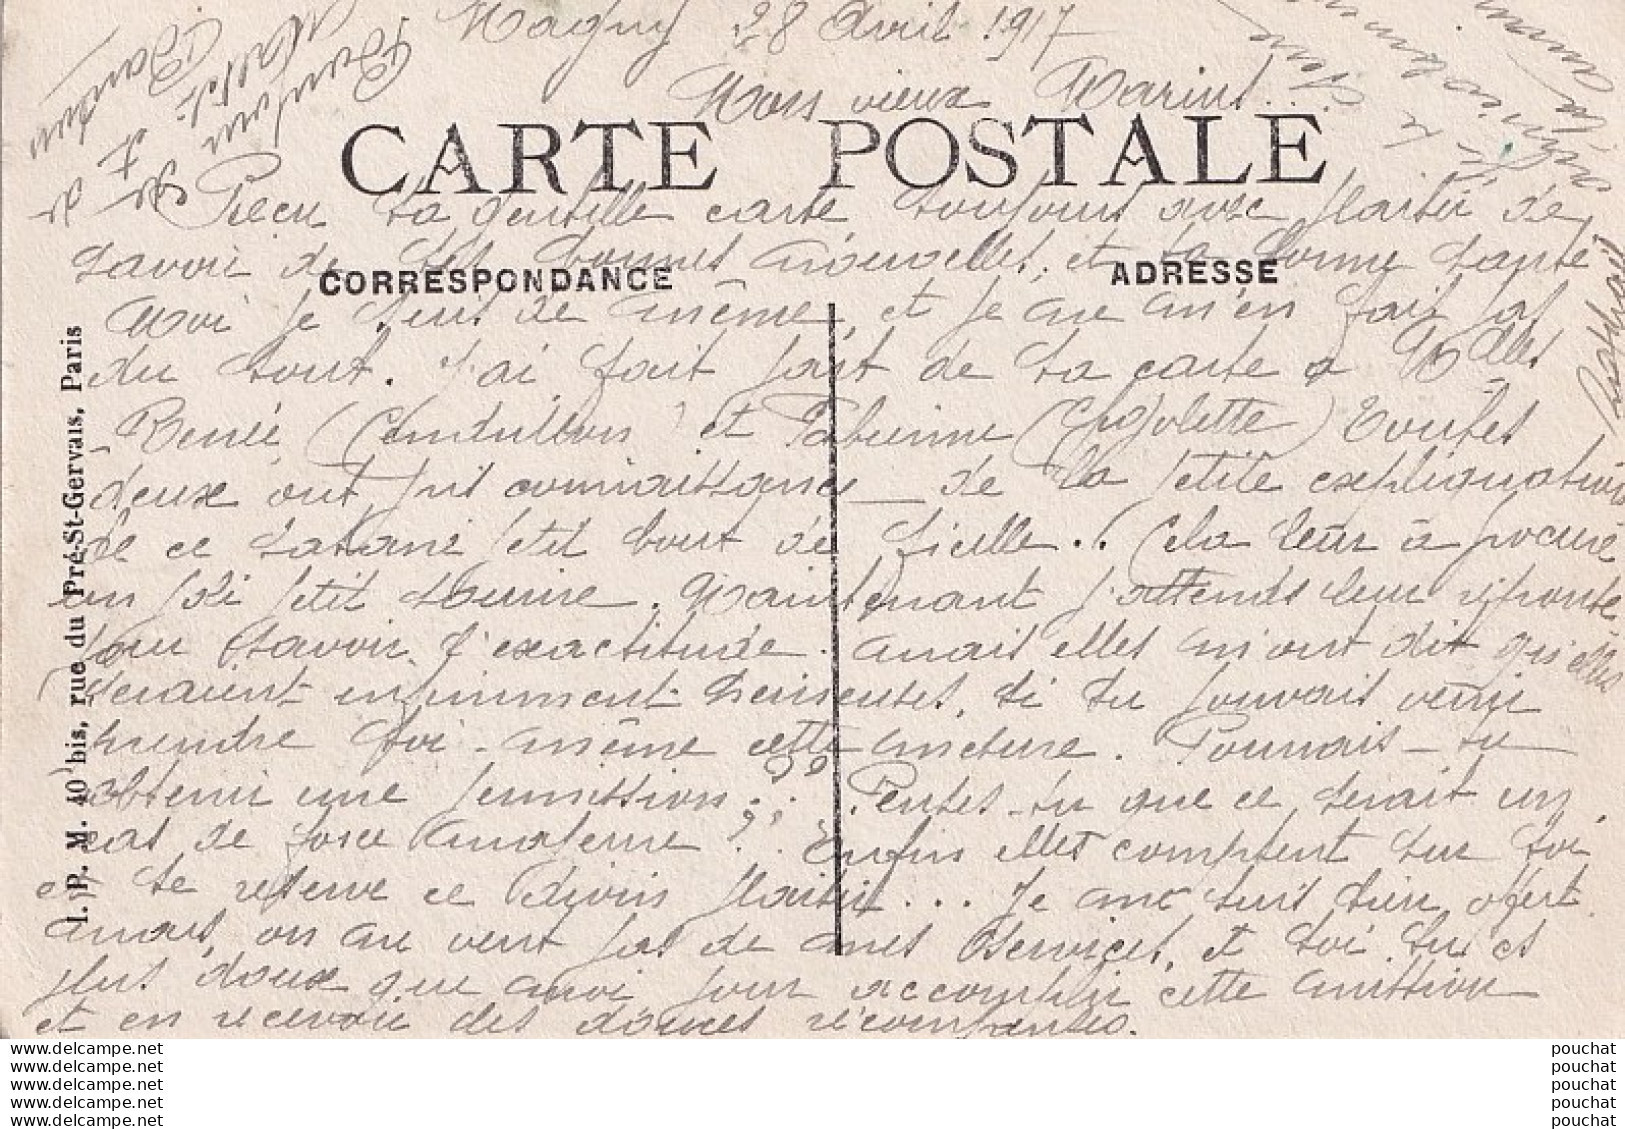 Magny 28 Avril 1917
Mon vieux Marius...
CARTE POSTALE
Recu ta gentille carte toujours avec plaisir de
savoir de tes bonnes nouvelles, et ta bonne santé
CORRESPONDANCE
ADRESSE
Moi je suis de même, et je ne m'en fait pas
du tout. J'ai fait part de ta carte a Melles
Renée (Cendrillon) et Fabienne (Gigolette) Toutes
deux ont pris connaissance de la petite explication
de ce satané petit bout de ficelle.. Cela leur à procuré
un joli petit sourire. Maintenant j'attends leur réponse
pour savoir l'exactitude. mais elles m'ont dit qu'elles
seraient infiniment heureuses, si tu pouvais venir
prendre toi-même cette mesure. Pourrais-tu
obtenir une permission?? Penses-tu que ce serait un
cas de force majeure?? Enfin elles comptent sur toi
et te réserve ce divin plaisir... Je me suis bien offert
mais, on ne veut pas de mes services, et toi tu es
plus doux que moi pour accomplir cette mission
et en recevoir des douces récompenses.
Bonjour
de
et de
I. P. M. 40 bis, rue du Pré-St-Gervais, Paris
www.delcampe.net pouchat
www.delcampe.net pouchat
www.delcampe.net pouchat
www.delcampe.net pouchat
www.delcampe.net pouchat